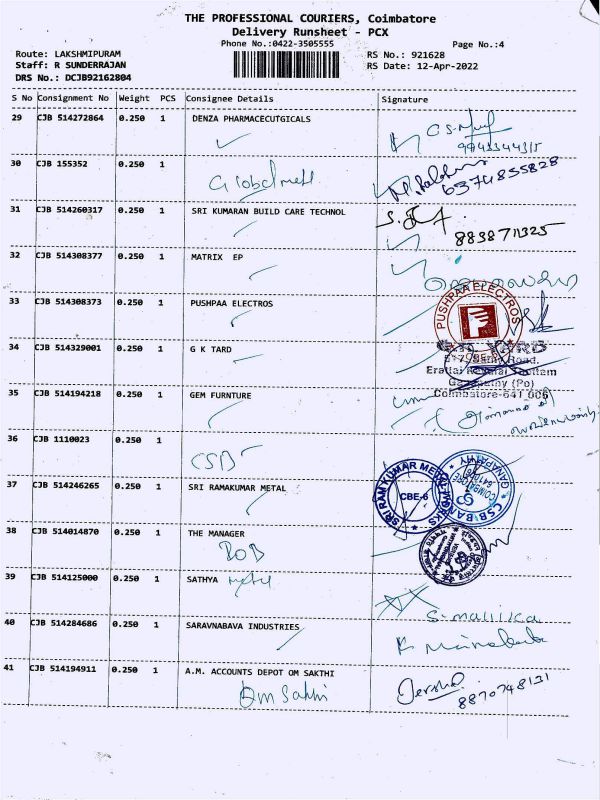 THE PROFESSIONAL COURIERS, Coimbatore
Delivery Runsheet - PCX
Phone No.:0422-3505555
Page No.:4
Route: LAKSHMIPURAM
RS No.: 921628
Staff: R SUNDERRAJAN
RS Date: 12-Apr-2022
DRS No.: DCJB92162804
S No Consignment No Weight PCS Consignee Details Signature
29 CJB 514272864 0.250 1 DENZA PHARMACECUTGICALS
9943344315
30 CJB 155352 0.250 1
Globalmett
6374835828
31 CJB 514260317 0.250 1 SRI KUMARAN BUILD CARE TECHNOL
8838711325
32 CJB 514308377 0.250 1 MATRIX EP
33 CJB 514308373 0.250 1 PUSHPAA ELECTROS
PUSHPAA ELECTROS
34 CJB 514329001 0.250 1 G K TARD
Road.
Thottam
(Po)
Coimbatore-641 006
35 CJB 514194218 0.250 1 GEM FURNTURE
36 CJB 1110023 0.250 1
CSB
37 CJB 514246265 0.250 1 SRI RAMAKUMAR METAL
SRI RAM KUMAR METAL WORKS
CBE-6
CSB BANK
GANAPATHY
COIMBATORE
38 CJB 514014870 0.250 1 THE MANAGER
BOB
39 CJB 514125000 0.250 1 SATHYA metal
S. mallika
40 CJB 514284686 0.250 1 SARAVNABAVA INDUSTRIES
41 CJB 514194911 0.250 1 A.M. ACCOUNTS DEPOT OM SAKTHI
Om Sakthi
8870748131